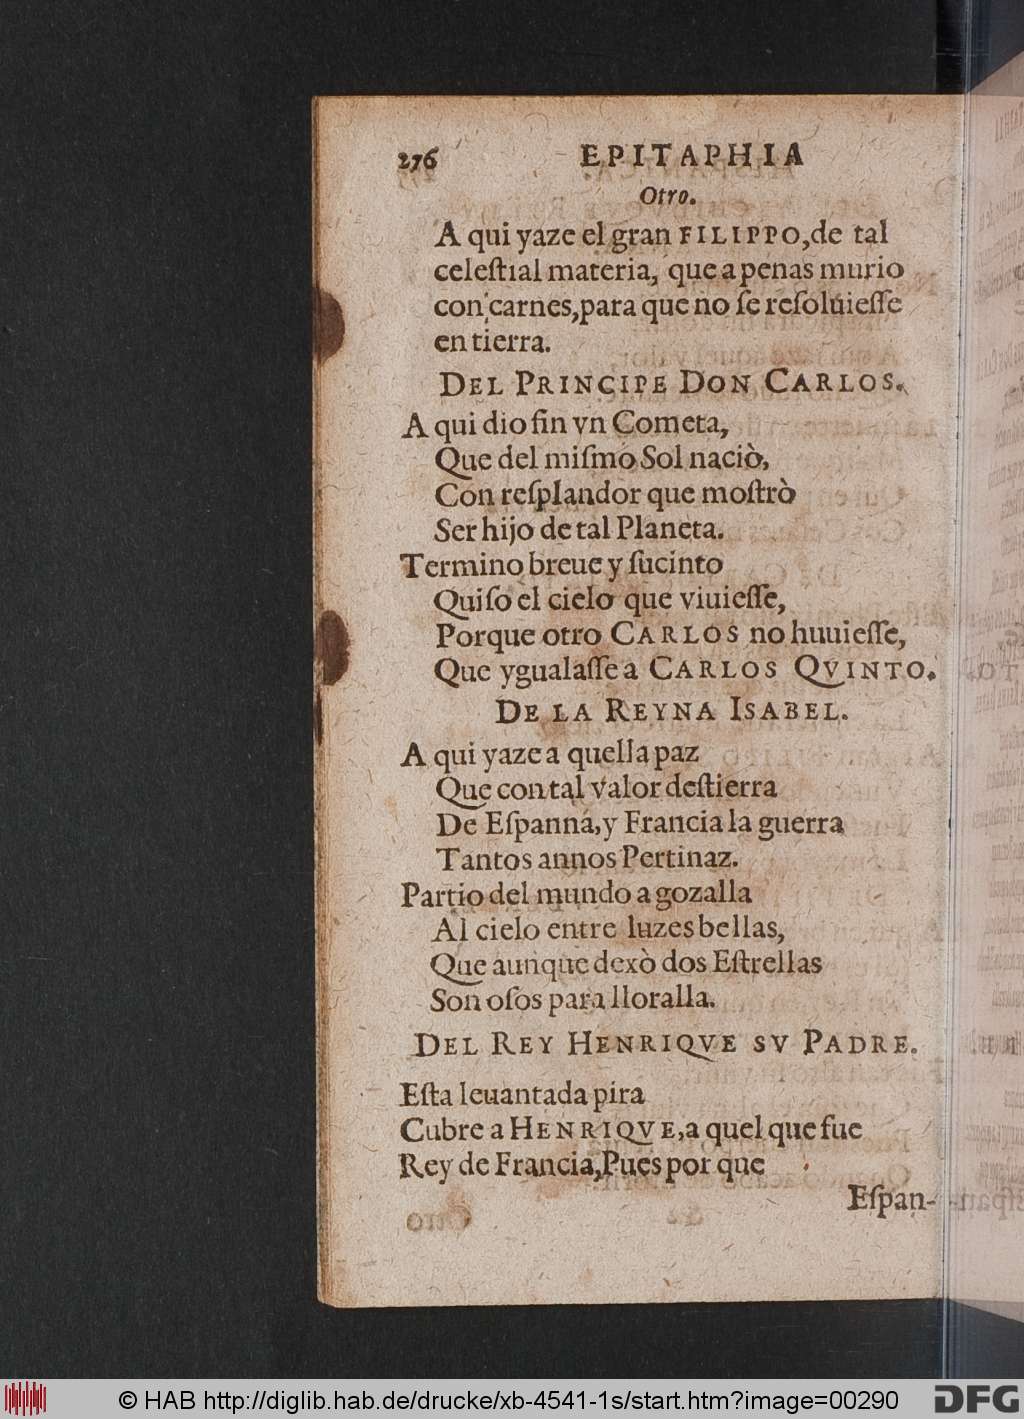 276 EPITAPHIA
Otro.
A qui yaze el gran FILIPPO, de tal
celeſtial materia, que a penas murio
con carnes, para que no ſe reſoluieſſe
en tierra.
DEL PRINCIPE DON CARLOS.
A qui dio fin vn Cometa,
Que del miſmo Sol naciò,
Con reſplandor que moſtrò
Ser hijo de tal Planeta.
Termino breue y ſucinto
Quiſo el cielo que viuieſſe,
Porque otro CARLOS no huuieſſe,
Que ygualaſſe a CARLOS QVINTO.
DE LA REYNA ISABEL.
A qui yaze a quella paz
Que con tal valor deſtierra
De Eſpanna, y Francia la guerra
Tantos annos Pertinaz.
Partio del mundo a gozalla
Al cielo entre luzes bellas,
Que aunque dexò dos Eſtrellas
Son oſos para lloralla.
DEL REY HENRIQVE SV PADRE.
Eſta leuantada pira
Cubre a HENRIQVE, a quel que fue
Rey de Francia, Pues por que
Eſpan-
© HAB http://diglib.hab.de/drucke/xb-4541-1s/start.htm?image=00290
DFG